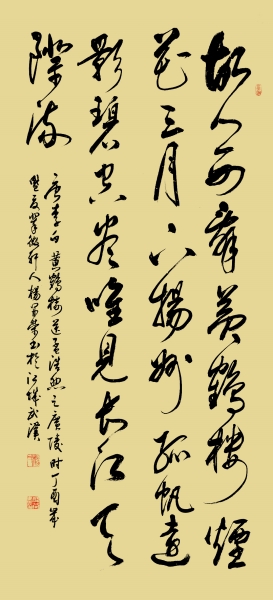 故人西辭黄鶴樓煙
花三月下揚州孤帆遠
影碧空盡唯見長江天
際流
唐李白黄鶴樓送孟浩然之廣陵时丁酉年
軒人楊書於江城武漢